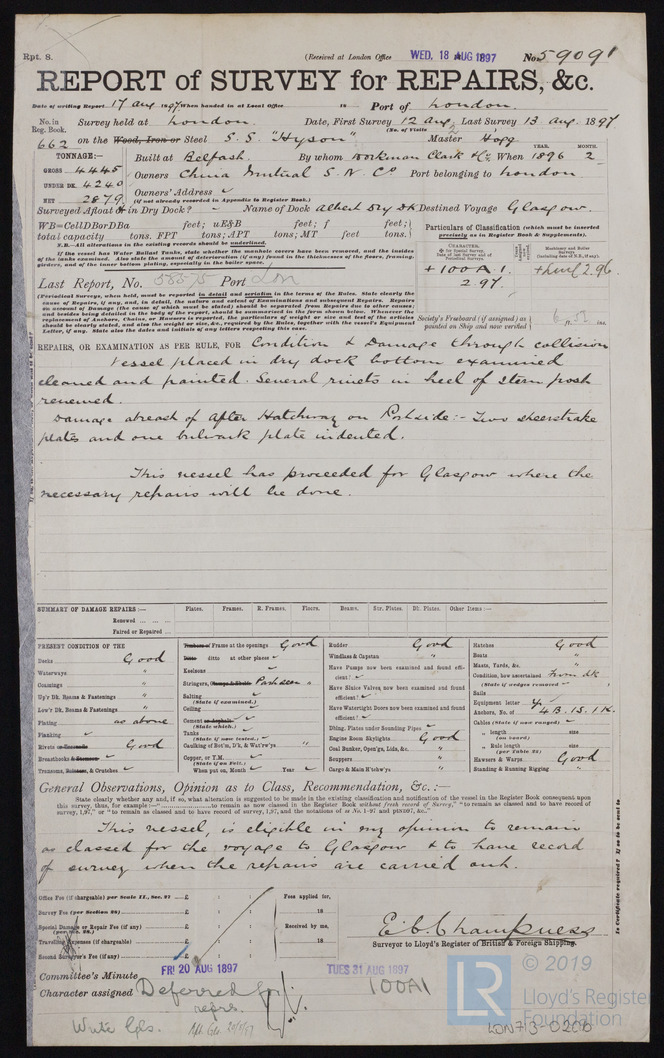 Rpt. 8.
(Received at London Office WED. 18 AUG 1897 No. 59091
REPORT of SURVEY for REPAIRS, &c.
Date of writing Report 17 Aug 1897 When handed in at Local Office 18 Port of London.
No. in Survey held at London. Date, First Survey 12 Aug, Last Survey 13 Aug. 1897
Reg. Book. (No. of Visits 2)
662 on the Wood, Iron or Steel S. S. "Hyson" Master Hogg
TONNAGE:— Built at Belfast. By whom Workman Clark & Co When 1896 YEAR. MONTH. 2
GROSS 4445 Owners China Mutual S. N. Co Port belonging to London
UNDER DK. 4240 Owners' Address
NET 2879 (if not already recorded in Appendix to Register Book.)
Surveyed Afloat or in Dry Dock? Name of Dock Albert Dry Dk Destined Voyage Glasgow.
WB=CellDBorDBa feet; uE&B feet; f feet;
total capacity tons. FPT tons; APT tons; MT feet tons.
N.B.—All alterations in the existing records should be underlined.
If the vessel has Water Ballast Tanks, state whether the manhole covers have been removed, and the insides
of the tanks examined. Also state the amount of deterioration (if any) found in the thicknesses of the floors, framing,
girders, and of the inner bottom plating, especially in the boiler space.
Particulars of Classification (which must be inserted
precisely as in Register Book & Supplements).
CHARACTER.
+ 100 A 1.
2 97
+ LMC 2.96
Last Report, No. 58875 Port Lon
(Periodical Surveys, when held, must be reported in detail and seriatim in the terms of the Rules. State clearly the
cause of Repairs, if any, and, in detail, the nature and extent of Examinations and subsequent Repairs. Repairs
on account of Damage (the cause of which must be stated) should be separated from Repairs due to other causes;
and besides being detailed in the body of the report, should be summarized in the form shown below. Whenever the
replacement of Anchors, Chains, or Hawsers is reported, the particulars of weight or size and test of the articles
should be clearly stated, and also the weight or size, &c., required by the Rules, together with the vessel's Equipment
Letter, if any. State also the dates and initials of any letters respecting this case.
Society's Freeboard (if assigned) as
painted on Ship and now verified
REPAIRS, OR EXAMINATION AS PER RULE, FOR Condition & Damage through collision
Vessel placed in dry dock bottom examined
cleaned and painted. Several rivets in heel of stern post
renewed.
Damage abreast of After Hatchway on Portside:- Two sheerstrake
plates and one bulwark plate indented.
This vessel has proceeded for Glasgow where the
necessary repairs will be done.
SUMMARY OF DAMAGE REPAIRS:— Plates. Frames. R. Frames. Floors. Beams. Str. Plates. Bl. Plates. Other Items:—
Renewed
Faired or Repaired
PRESENT CONDITION OF THE
Decks Good
Waterways "
Coamings "
Up'r Dk. Beams & Fastenings "
Low'r Dk. Beams & Fastenings "
Plating as above
Planking
Rivets Good
Breasthooks
Transoms, & Crutches
Frame at the openings Good
ditto at other places
Keelsons
Stringers, Part seen "
Salting
(State if examined.)
Ceiling
Cement
(State which.)
Tanks
(State if now tested.)
Caulking of Bot'm, D'k, & Wat'rw'ys "
Copper, or Y.M.
(State if on Felt.)
When put on, Month Year
Rudder Good
Windlass & Capstan "
Have Pumps now been examined and found efficient?
Have Sluice Valves now been examined and found efficient?
Have Watertight Doors now been examined and found efficient?
Dbling. Plates under Sounding Pipes
Engine Room Skylights Good
Coal Bunker, Open'gs, Lids, &c. "
Scuppers "
Cargo & Main H'tchw'ys "
Hatches Good
Boats "
Masts, Yards, &c. "
Condition, how ascertained from dk
(State if wedges removed
Sails
Equipment letter
Anchors, No. of 4B. 1S. 1K.
Cables (State if now ranged)
" length size
(on board)
" Rule length size
(per Table 22)
Hawsers & Warps Good
Standing & Running Rigging "
General Observations, Opinion as to Class, Recommendation, &c.:—
State clearly whether any and, if so, what alteration is suggested to be made in the existing classification and notification of the vessel in the Register Book consequent upon
This vessel, is eligible in my opinion to remain
as classed for the voyage to Glasgow & to have record
of survey when the repairs are carried out.
Office Fee (if chargeable) per Scale II., Sec. 27 £ : : Fees applied for,
Survey Fee (per Section 28) £ : : 18
Special Damage or Repair Fee (if any) £ : : Received by me,
(per Sec. 28.)
Travelling Expenses (if chargeable) £ : : 18
Second Surveyor's Fee (if any) £ : :
E. C. Champness
Surveyor to Lloyd's Register of British & Foreign Shipping.
Committee's Minute FRI 20 AUG 1897 TUES 31 AUG 1897
Character assigned Deferred for 100A1
repairs.
Write Gls.
LON713-0200
© 2019
LR
Lloyd's Register
Foundation